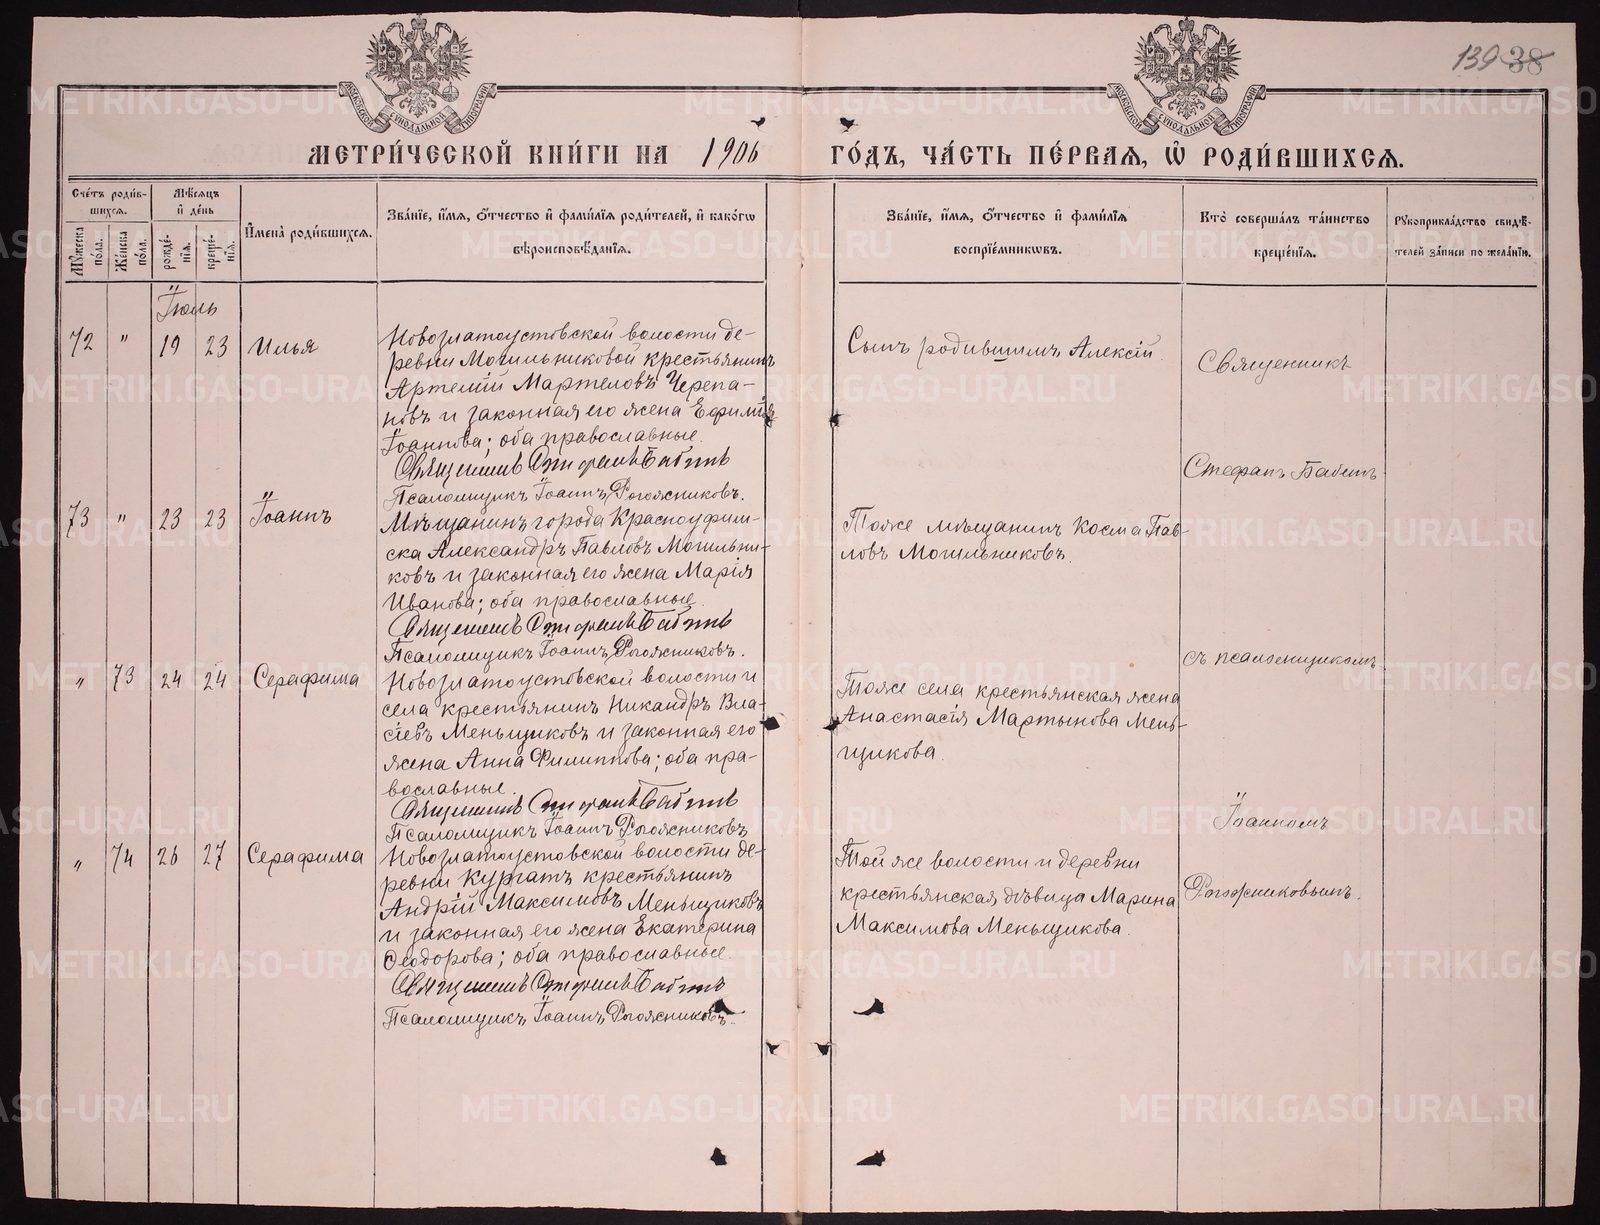 139 38
МОСКОВСКОЙ СѴНОДАЛЬНОЙ ТИПОГРАФІИ
МОСКОВСКОЙ СѴНОДАЛЬНОЙ ТИПОГРАФІИ
МЕТРИ́ЧЕСКОЙ КНИ́ГИ НА 1906 ГО́ДЪ, ЧА́СТЬ ПЕ́РВАЯ, Ѡ҆ РОДИ́ВШИХСЯ.
Сче́тъ роди́в-
шихся.
Мꙋжеска по́ла.
Же́нска по́ла.
Мѣ́сяцъ
и҆ де́нь
рожде́-
нїя.
креще́-
нїя.
И҆мена̀ роди́вшихся.
Зва́нїе, и҆́мя, ѻ҆́тчество и҆ фами́лїя роди́телей, и҆ како́гѡ
вѣроисповѣ́данїя.
Зва́нїе, и҆́мя, ѻ҆́тчество и҆ фами́лїя
воспрїе́мникѡвъ.
Кто̀ соверша́лъ та́инство
креще́нїя.
Рꙋкоприкла́дство свидѣ́-
телей за́писи по жела́нїю.
Іюль
72 " 19 23 Илья
Новозлатоустовской волости де-
ревни Могильниковой крестьянинъ
Артемій Мартеловъ Черепа-
новъ и законная его жена Ефимія
Іоаннова; оба православные.
Священникъ Стефанъ Бабинъ
Псаломщикъ Іоаннъ Рогожниковъ.
Сынъ родившимъ Алексій
73 " 23 23 Іоаннъ
Мѣщанинъ города Красноуфим-
ска Александръ Павловъ Могильни-
ковъ и законная его жена Марія
Иванова; оба православные.
Священникъ Стефанъ Бабинъ
Псаломщикъ Іоаннъ Рогожниковъ.
Тоже мѣщанинъ Косма Пав-
ловъ Могильниковъ.
" 73 24 24 Серафима
Новозлатоустовской волости и
села крестьянинъ Никандръ Вла-
сіевъ Меньщиковъ и законная его
жена Анна Филиппова; оба пра-
вославные.
Священникъ Стефанъ Бабинъ
Псаломщикъ Іоаннъ Рогожниковъ
Тоже села крестьянская жена
Анастасія Мартынова Мень-
щикова.
" 74 26 27 Серафима
Новозлатоустовской волости де-
ревни Кургатъ крестьянинъ
Андрій Максимовъ Меньщиковъ
и законная его жена Екатерина
Ѳеодорова; оба православные.
Священникъ Стефанъ Бабинъ
Псаломщикъ Іоаннъ Рогожниковъ.
Той же волости и деревни
крестьянская дѣвица Марина
Максимова Меньщикова.
Священникъ
Стефанъ Бабинъ
съ псаломщикомъ
Іоанномъ
Рогожниковымъ.
METRIKI.GASO-URAL.RU